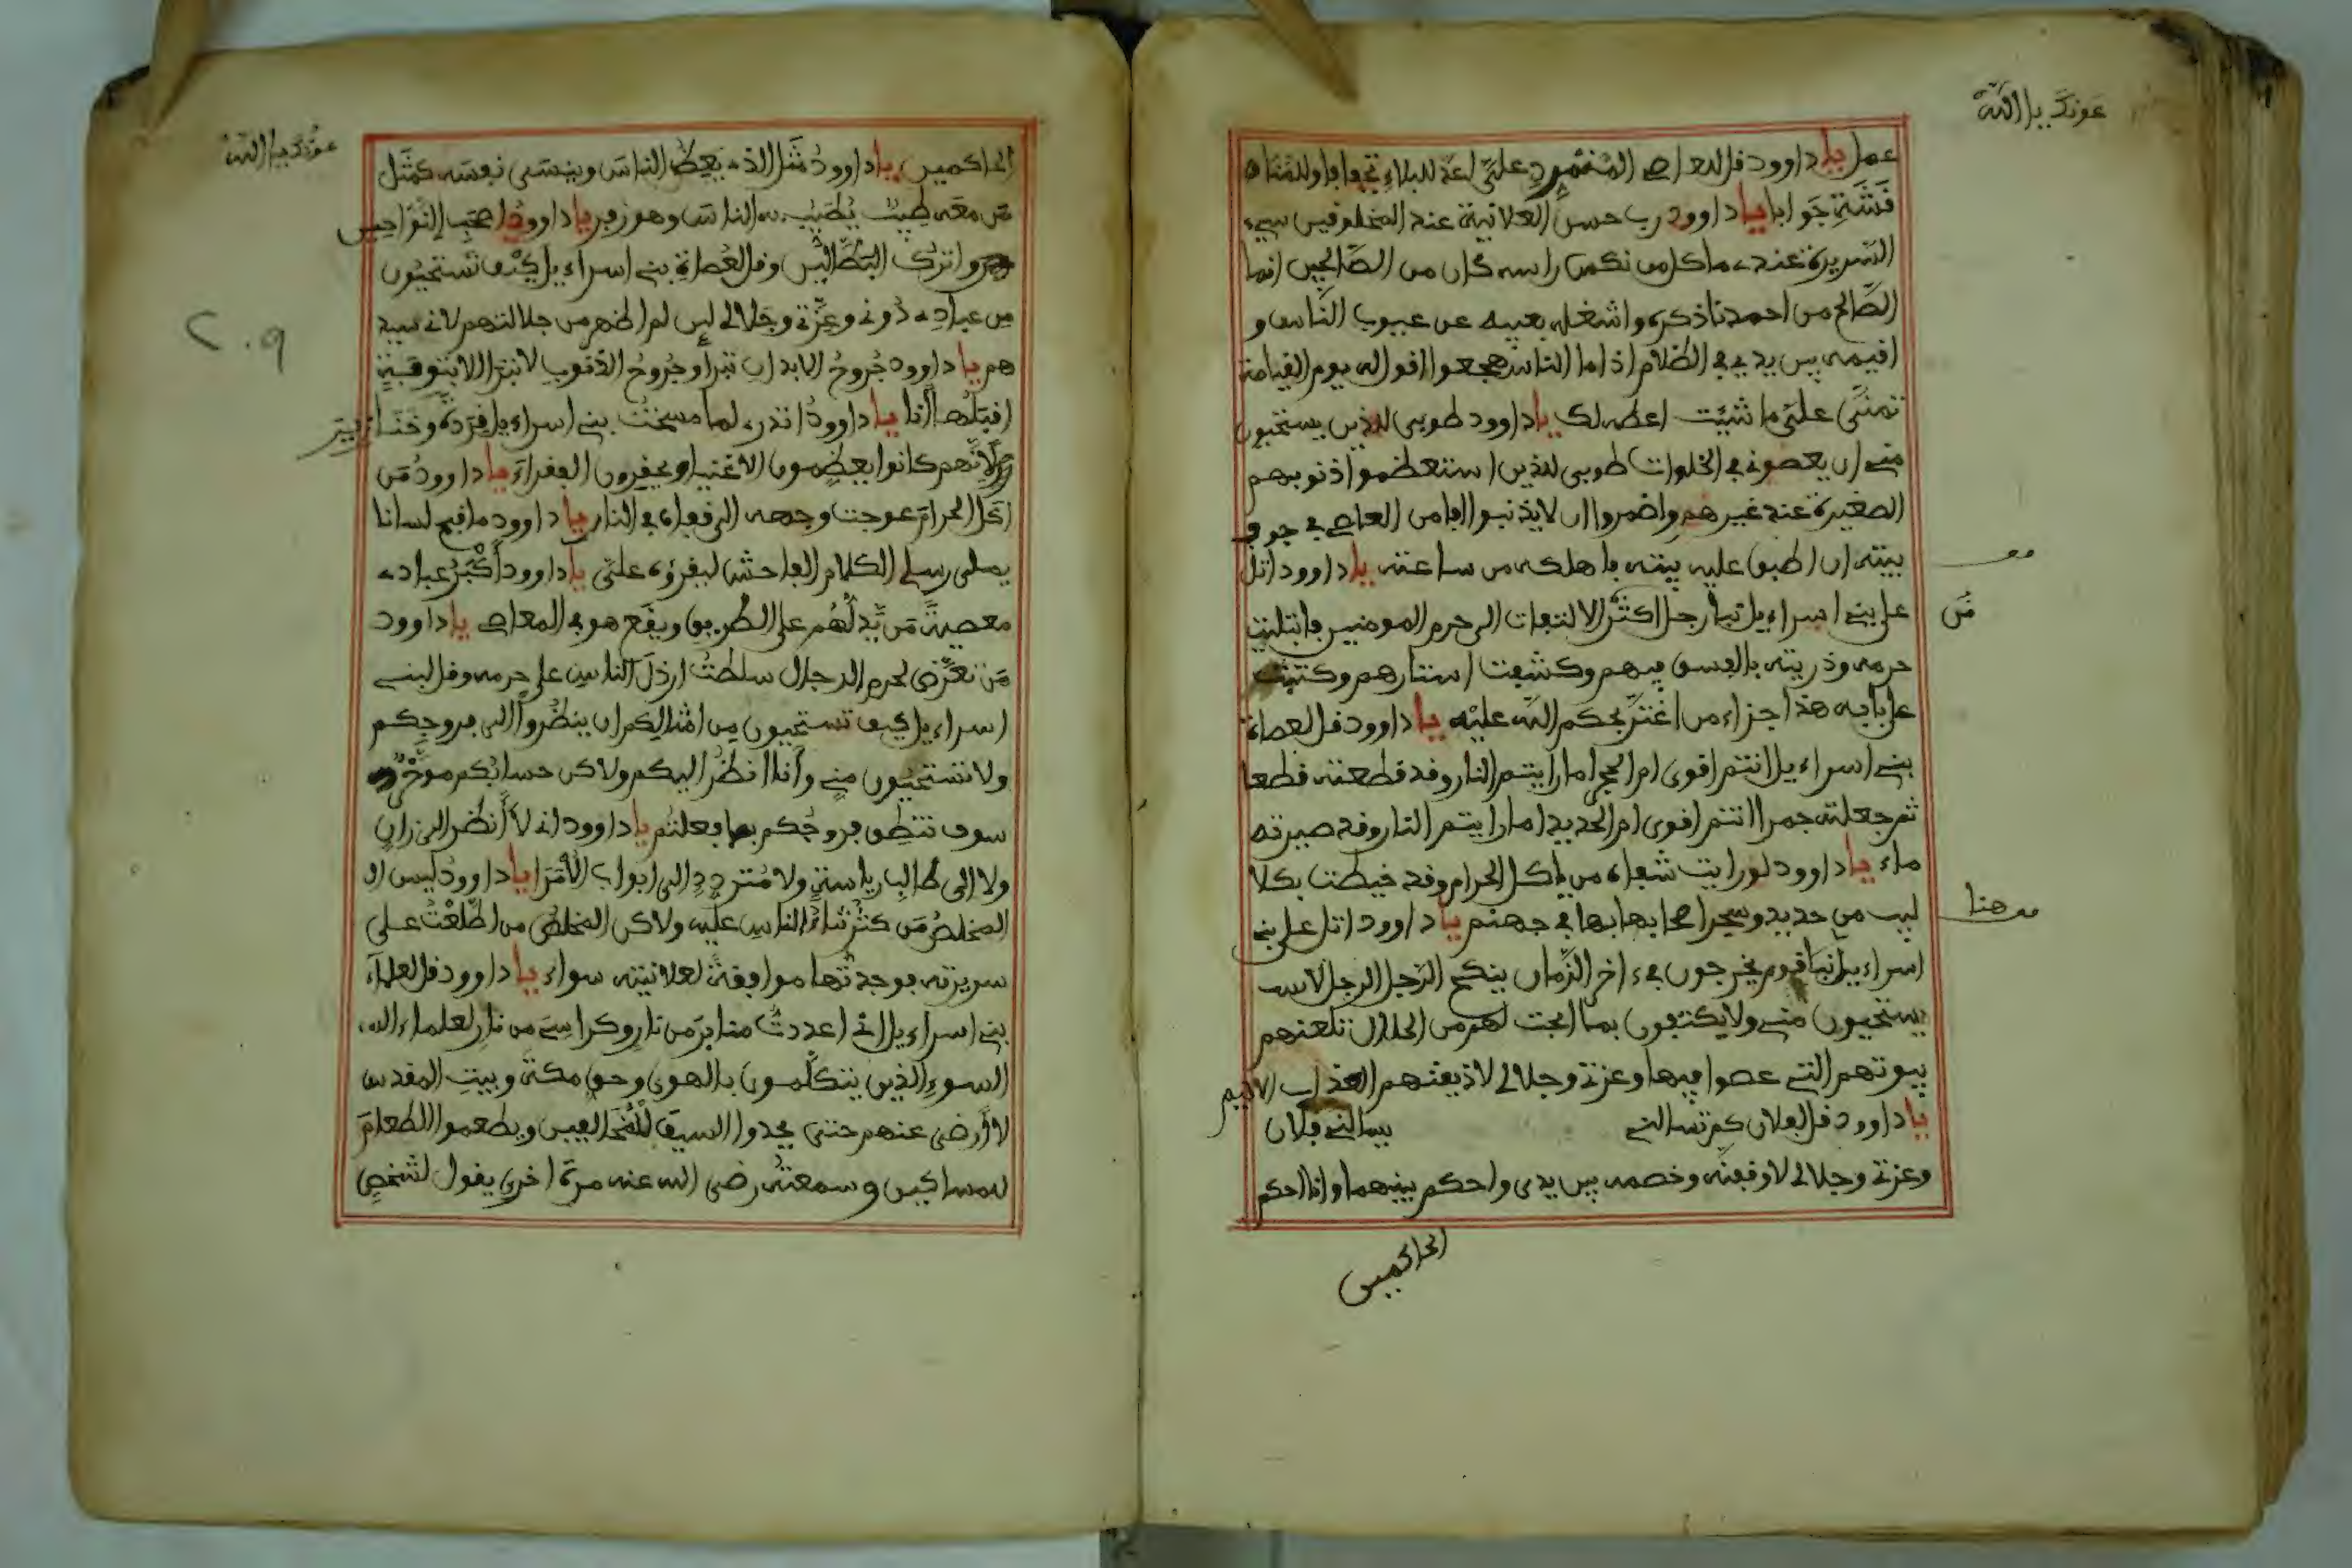 عونك يا الله
عمل يا داوود فل للعاصي المتمرد علي اعد للبلاء
جوابا يا داوود رب حسن العلانية عند المخلوفين سيء
السريرة عندي ما كل من نكس راسه كان من الصالحين انما
الصالح من احمدنا ذكره واشغله بعيبه عن عيوب الناس و
افيمه بين يدي في الظلام اذا ما الناس هجعوا افول له يوم القيامة
تمنى علي ما شيت اعطه لك يا داوود طوبى للذين يستحيون
مني ان يعصوني في الخلوات طوبى للذين استعظموا ذنوبهم
الصغيرة عند غيرهم واضمروا ان لا يذنبوا العاصي في جوف
بيته ان اطبق عليه بيته باهلكه من ساعته يا داوود اتل
على بني اسراءيل نبا رجل اكثر الالتفات الى حرم المومنين فابتليت
حرمه وذريته بالفسق فيهم وكشفت استارهم وكتبت
على بابه هذا جزاء من اغتر بحكم الله عليه يا داوود فل لعصاة
بني اسراءيل انتم افوى ام الحجر اما رايتم النار وفد فطعته فطعا
ثم جعلته جمرا انتم افوى ام الحديد اما رايتم النار وفد صيرته
ماء يا داوود لو رايت شفاه من ياكل الحرام وفد خيطت بكلا
ليب من حديد وسحر اصحابها بها في جهنم يا داوود اتل على بني
اسراءيل نبا فوم يخرجون في ءاخر الزمان ينكح الرجل الرجل لا
يستحيون مني ولا يكتفون بما ابحت لهم من الحلال تلعنهم
بيوتهم التي عصوا فيها وعزتي وجلالي لاذيفنهم العذاب الاليم
يا داوود فل لفلان كم تسالني بيما لي فلان
وعزتي وجلالي لاوفبنه وخصمه بين يدي واحكم بينهما وانا احكم
من
من هنا
الحاكمين
عونك يا الله
٢٠٩
الحاكمين يا داوود مثل الذي يعظ الناس وينسى نفسه كمثل
من معه طيب يطيب به الناس وهو زفر يا داوود اصحب النواحين
واترك البطالين وفل لعصاة بني اسراءيل كيف تستحيون
من عبادي دوني وعزتي وجلالي لين لم اطهر من جلالتهم لاني سيد
هم يا داوود جروح الابدان تبرا وجروح الذنوب لا تبرا الا بتوفيتي
افبلها انا يا داوود اتدري لما مسخت بني اسراءيل فردة وخنازير
لانهم كانوا يعظمون الاغنيا ويحفرون الففراء يا داوود من
اكل الحرام عوجت وجهه الى ففاه في النار يا داوود ما افبح لسانا
يملى رسلي الكلام الفاحش ليفروه علي يا داوود اكبر عبادي
معصية من يدلهم على الطريق ويفع هو في المعاصي يا داوود
من تعرض لحرم الرجال سلطت ارذل الناس على حرمه وفل لبني
اسراءيل كيف تستحيون من امثالكم ان ينظروا الى فروجكم
ولا تستحيون مني وانا انظر اليكم ولاكن حسابكم موخر
سوف تنطق فروجكم بما فعلتم يا داوود اني لا انظر الى زان
ولا الى طالب رياسة ولا متردد الى ابواب الامرا يا داوود ليس ال
المخلص من كثر ثناء الناس عليه ولاكن المخلص من اطلعت على
سريرته فوجدتها موافية لعلانيته سواء يا داوود فل لعلماء
بني اسراءيل اني اعددت منابر من نار وكراسي من نار لعلماء
السوء الذين يتكلمون بالهوى وحق مكة وبيت المقدس
لا ارضى عنهم حتى يجدوا السيف وبطعموا الطعام
للمساكين وسمعته رضي الله عنه مرة اخرى يفول لشخص